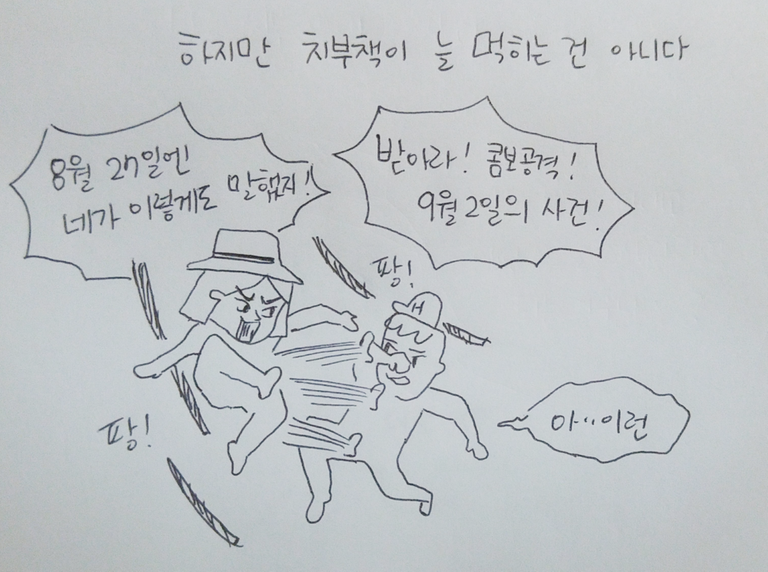 하지만 치부책이 늘 먹히는 건 아니다
8월 27일엔
네가 이렇게도 말했지!
받아라! 콤보공격!
9월 2일의 사건!
팡!
팡!
아..이런